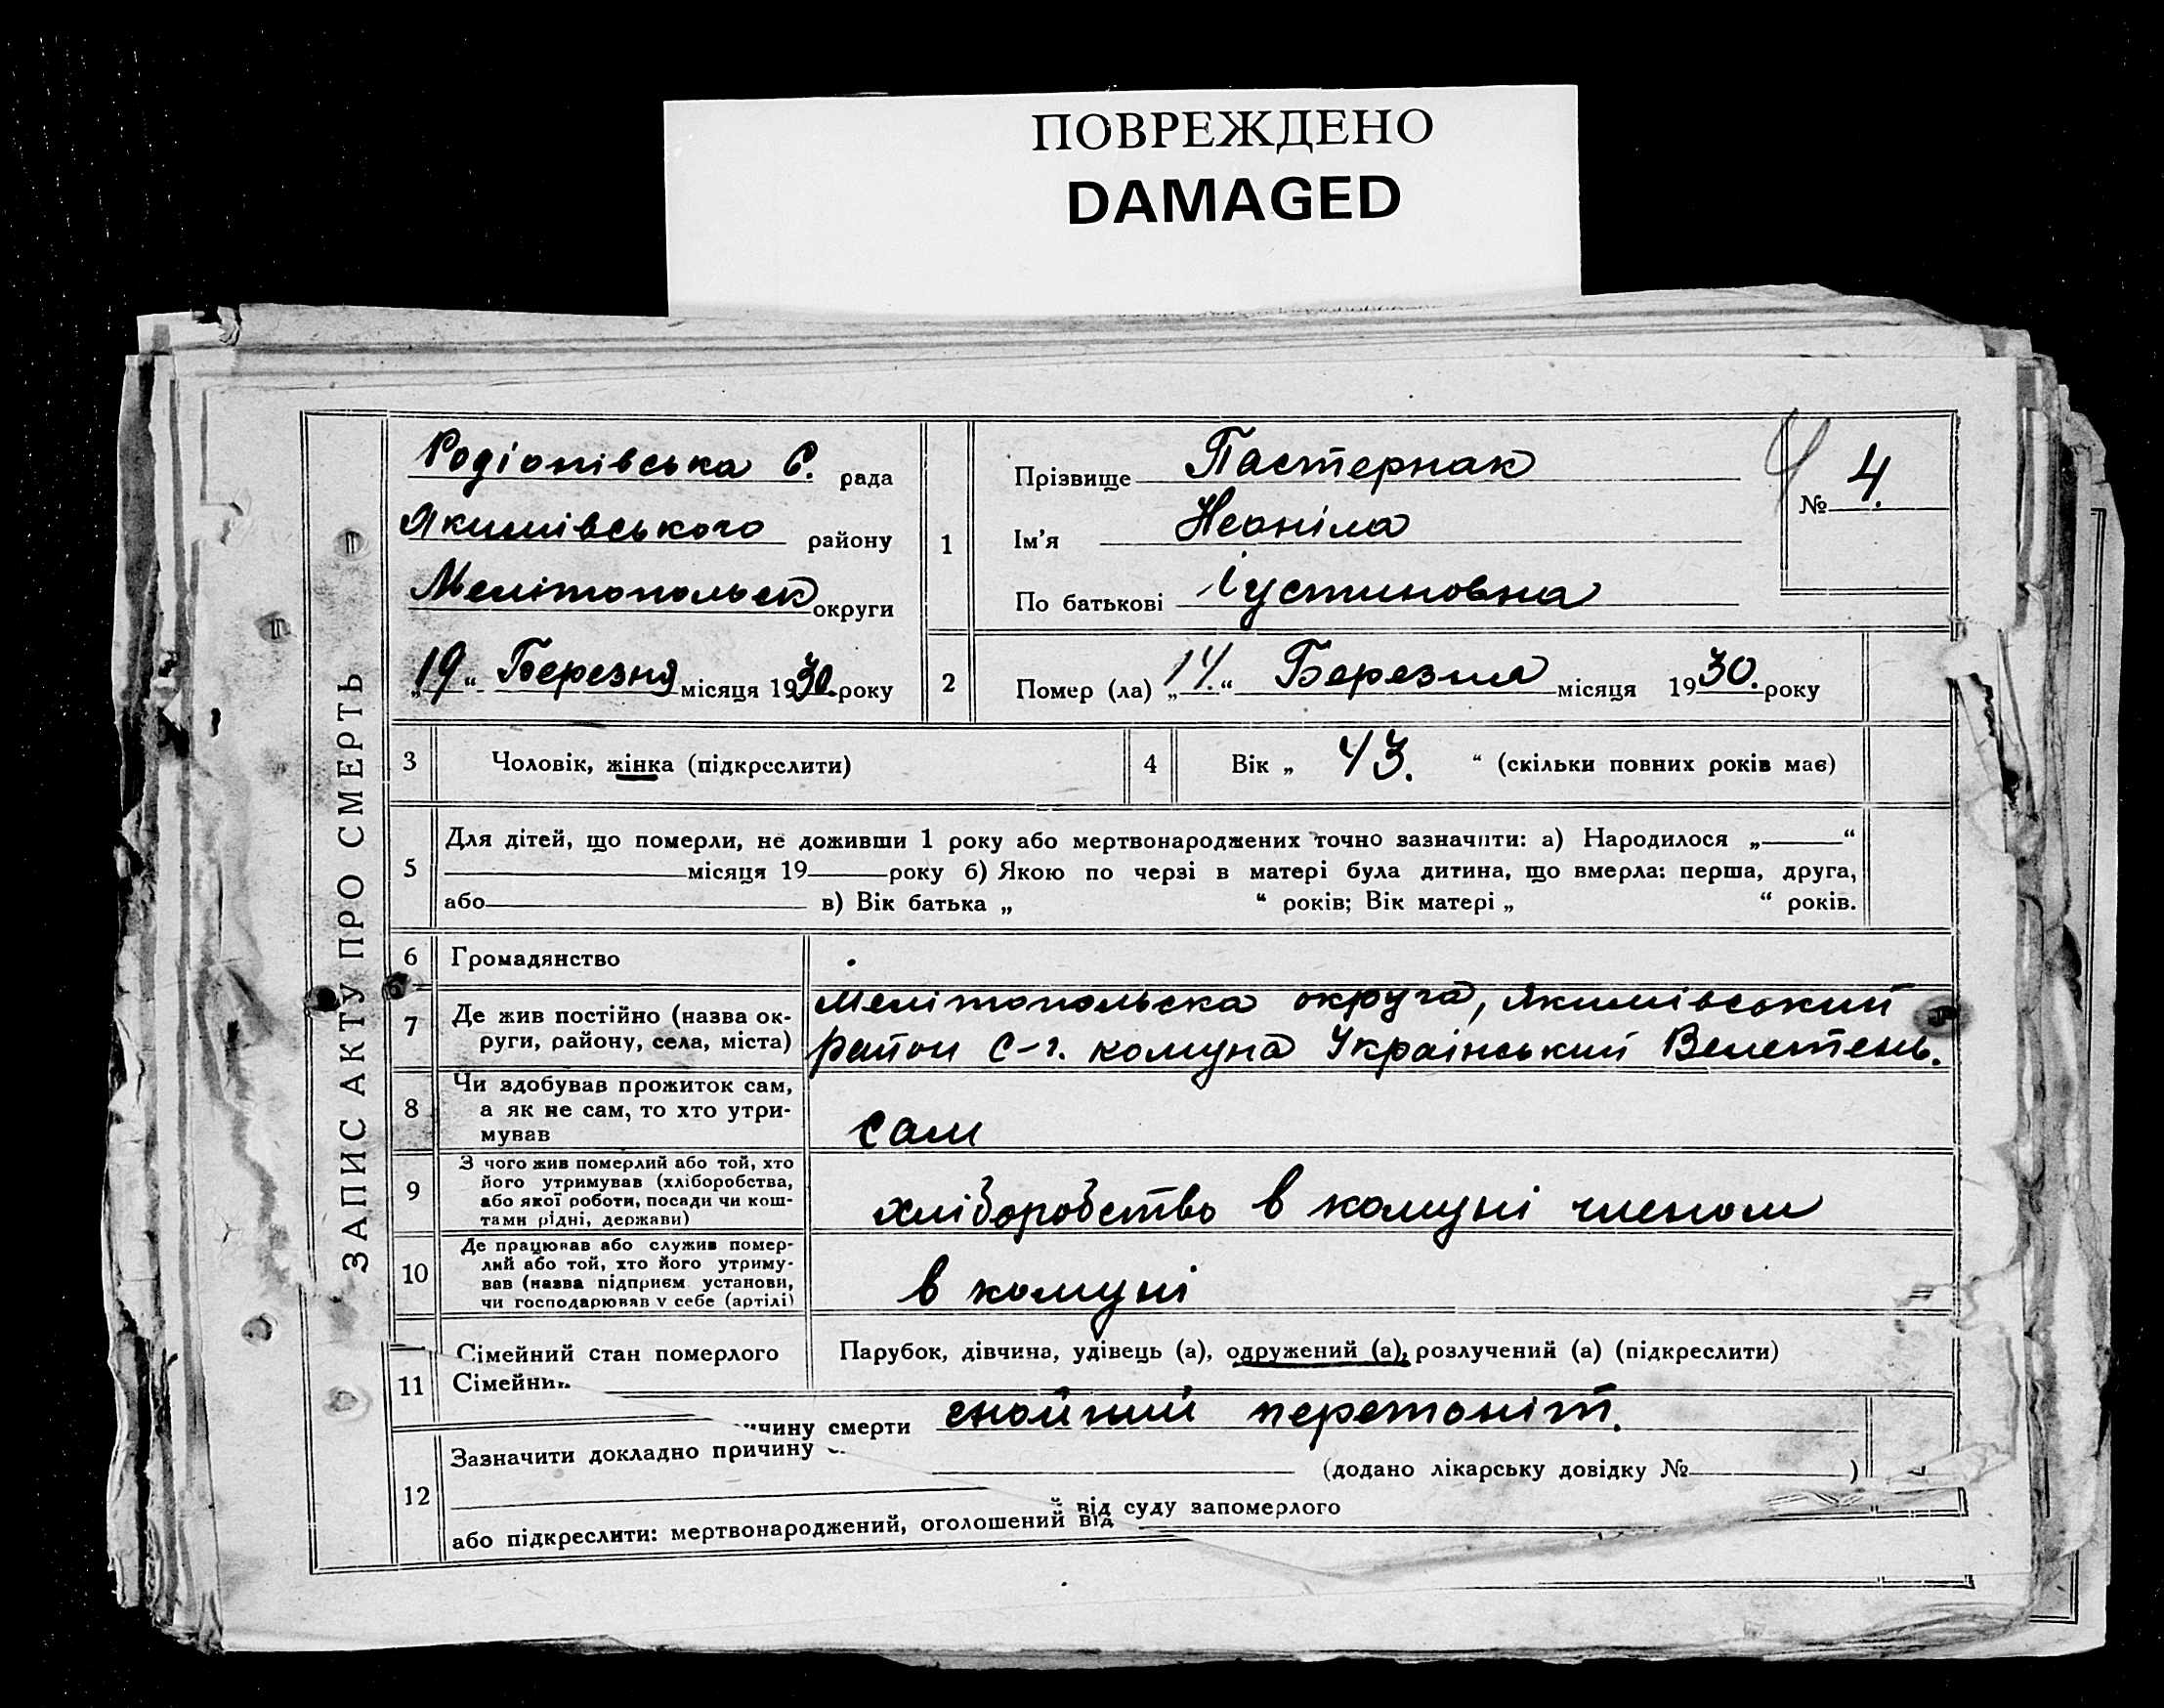 ПОВРЕЖДЕНО
DAMAGED
ЗАПИС АКТУ ПРО СМЕРТЬ
Родіонівська С. рада
Якимівського району
Мелітопольск округи
„19“ Березня місяця 1930. року
1
Прізвище Пастернак
Ім'я Неоніла
По батькові Іустиновна
№ 4.
2
Помер (ла) „14.“ Березня місяця 1930. року
3 Чоловік, жінка (підкреслити)
4 Вік „ 43. “ (скільки повних років має)
5
Для дітей, що померли, не доживши 1 року або мертвонароджених точно зазначити: а) Народилося „ “
місяця 19 року б) Якою по черзі в матері була дитина, що вмерла: перша, друга,
або в) Вік батька „ “ років; Вік матері „ “ років.
6 Громадянство
7
Де жив постійно (назва ок-
руги, району, села, міста)
Мелітопольска округа, Якимівський
район С-г. комуна Український Велетень.
8
Чи здобував прожиток сам,
а як не сам, то хто утри-
мував
сам
9
З чого жив померлий або той, хто
його утримував (хліборобства,
або якої роботи, посади чи кош-
тами рідні, держави)
хліборобство в комуні членом
10
Де працював або служив помер-
лий або той, хто його утриму-
вав (назва підприєм. установи,
чи господарював у себе (артілі)
в комуні
11
Сімейний стан померлого
Парубок, дівчина, удівець (а), одружений (а), розлучений (а) (підкреслити)
Сімейний
чину смерти гнойний перетоніт.
12
Зазначити докладно причину
(додано лікарську довідку № )
від суду запомерлого
або підкреслити: мертвонароджений, оголошений від